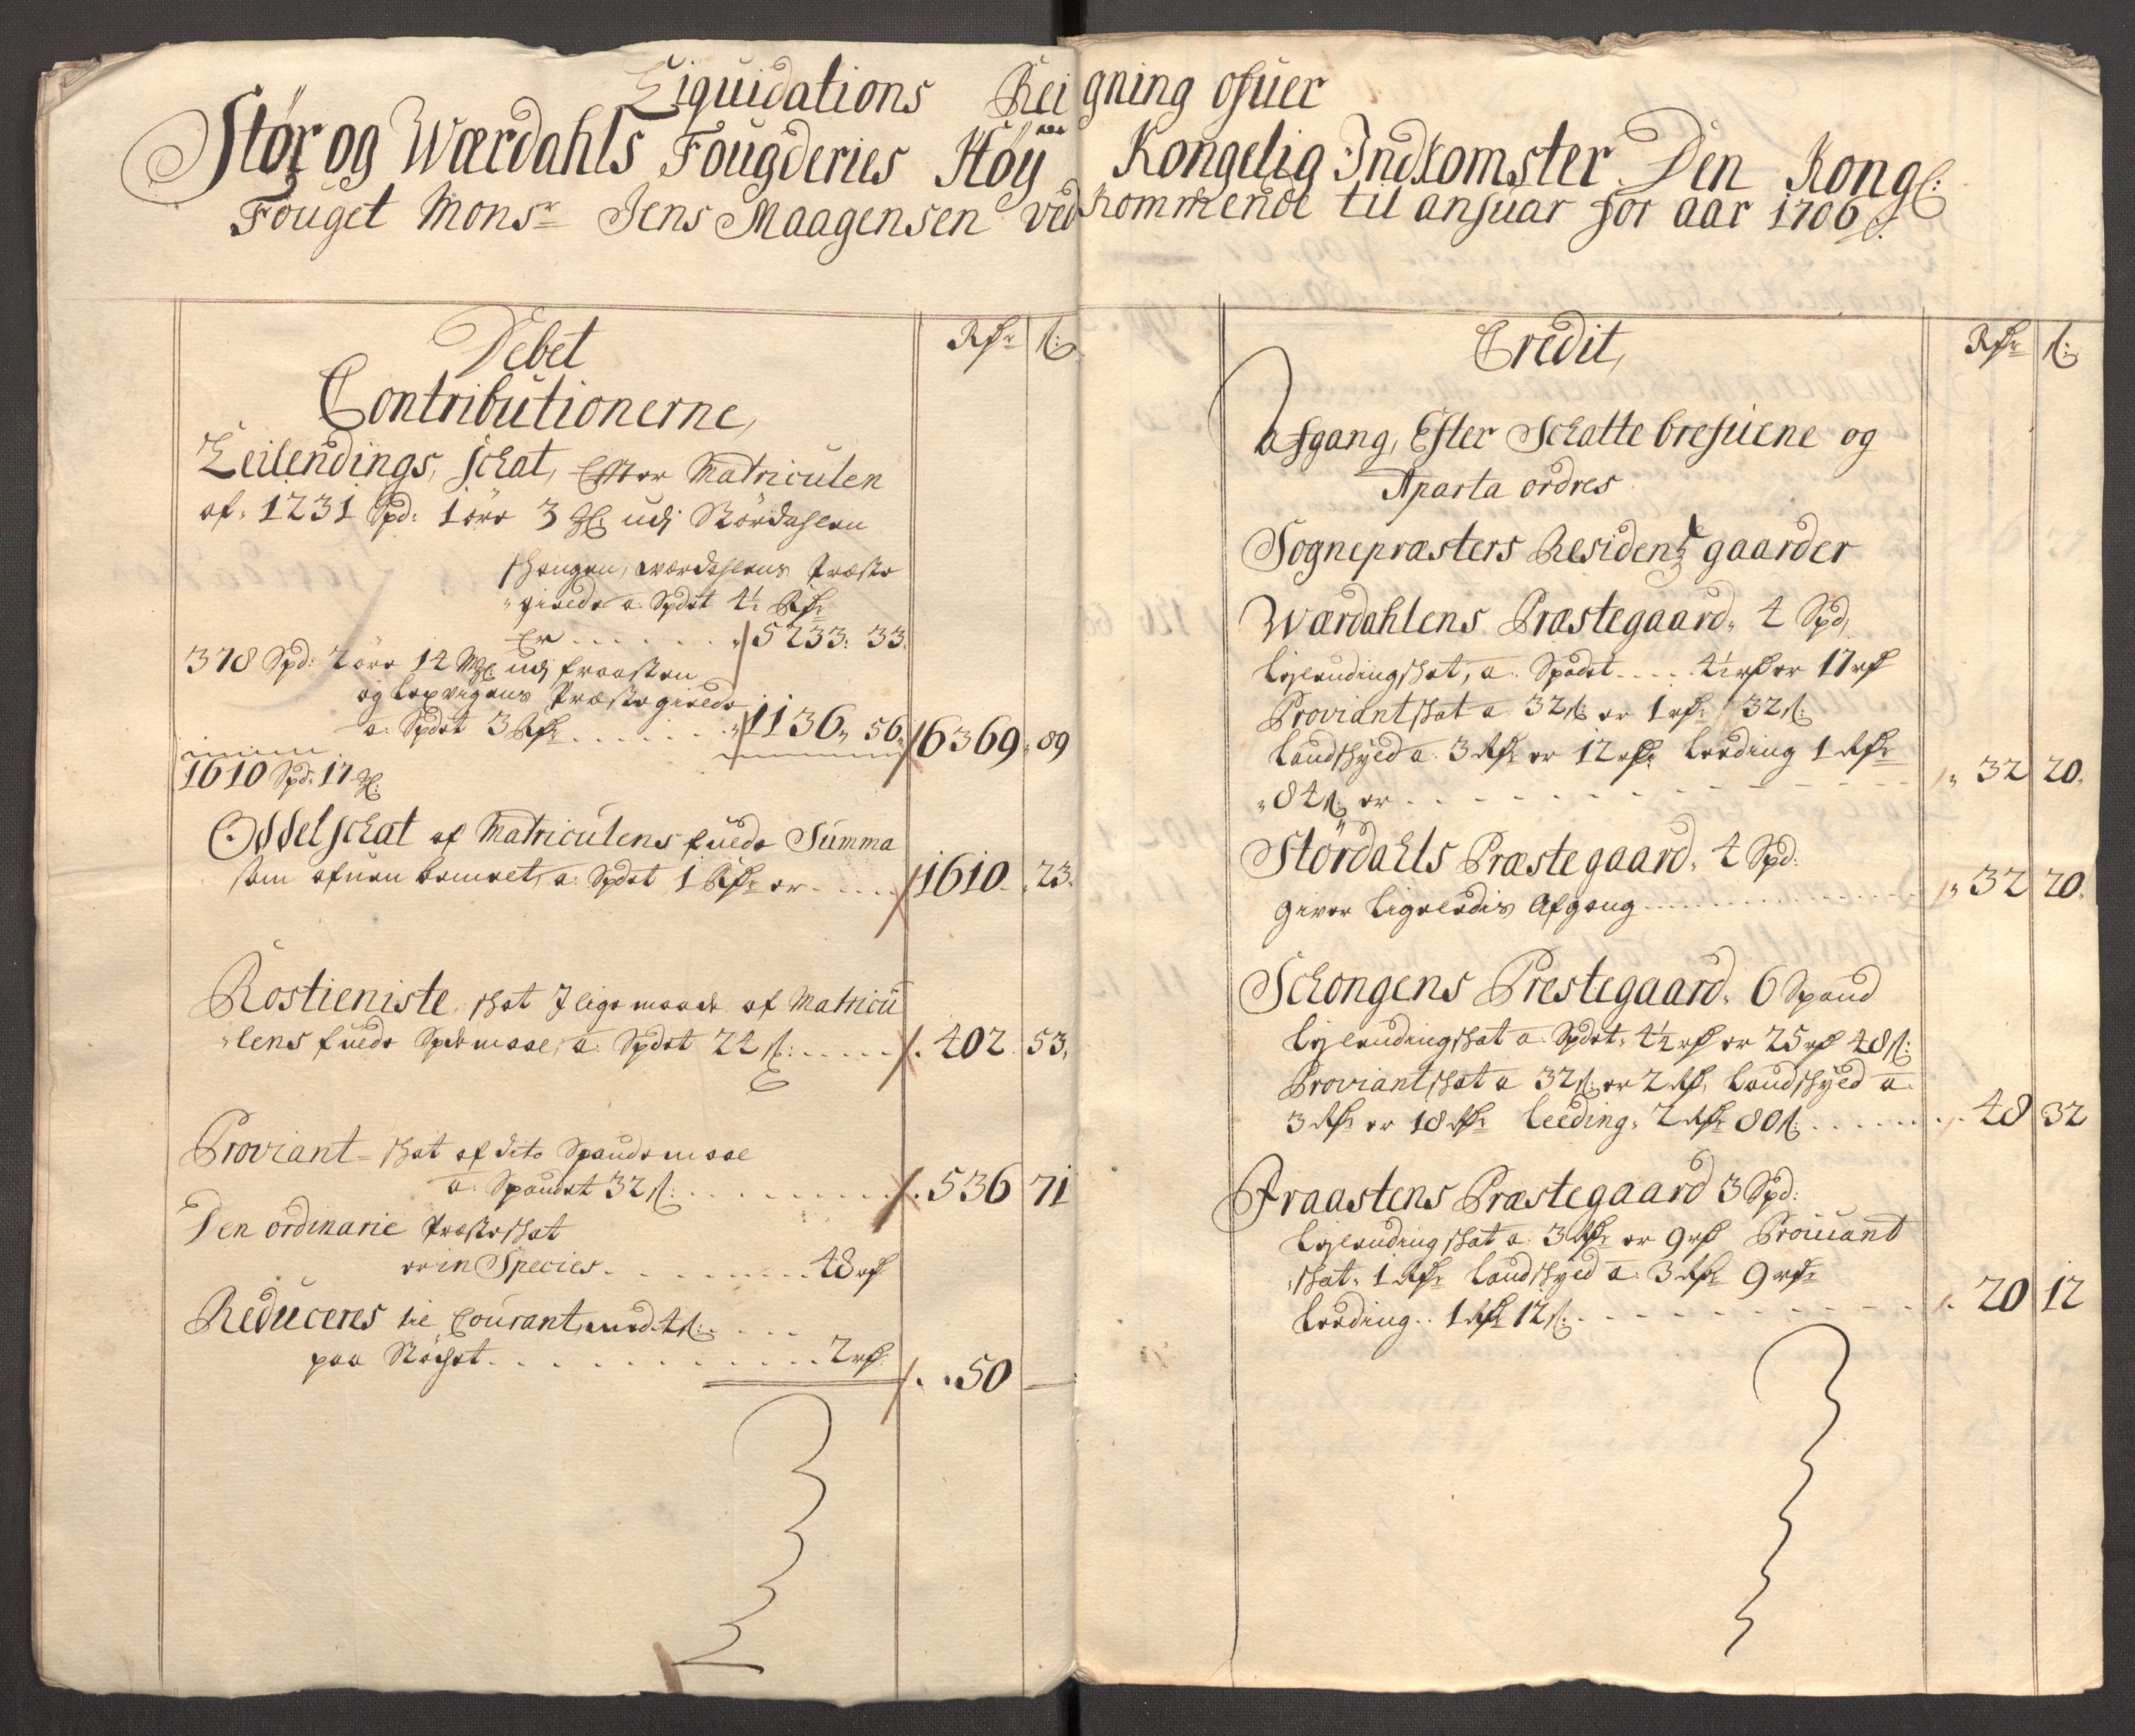 Liquidations Reigning ofuer
Stør og Wærdahls Fougderies Høy Kongelig Indkomster Den Kongl:
Fouget Monsr Jens Maagensen vedkommende til ansuar for aar 1706
Debet
Rdr ſ:
Contributionerne,
Leilendings, schat, Efter Matriculen
af. 1231 Spd: 1 øre 3 Ml: udj Størdahlen
Schongen, Wærdahlens Præste
gield a. Spdet 4¼ Rdr
Er . . . . . . 5233: 33.
378 Spd: 2 øre 14 Ml: udj fraasten
og Lexvigens Præstegield
a. Spdet 3 Rdr . . . . . . 1136, 56, 6369 89
1610 Spd: 17 Ml:
Oddelschat af Matriculens fulde Summa
som ofuen bemelt, a. Spdet 1 Rdr er . . . . 1610 23.
Rostieniste schat J lige maade af Matricu
lens fulde Spdemaal, a. Spdet 24 ſ: . . . . . 402 53,
Proviant=schat af dito Spandemaal
a. Spandet 32 ſ: . . . . . . . . . 536 71
Den ordinarie Præsteschat
er in Species . . . . . . . . . 48 rd
Reduceres til Courant, med 4 ſ: . . . .
paa Støchet . . . . . . . . . . . . . 2 rd. . . 50 —
Credit,
Rdr ſ:
Afgang, Efter Schattebrefuene og
Aparta ordres
Sognepræsters Residentz gaarder
Wærdahlens Præstegaard, 4 Spd,
Leylendingschat, a. Spdet . . . . 4¼ rd er 17 rd
Proviantschat a 32 ſ: er 1 rdr 32 ſ:
Landschyld a. 3 Rdr er 12 rdr Leeding 1 Rdr
84 ſ: er . . . . . . . . . . . . . . 32 20.
Størdahls Præstegaard, 4 Spd:
giver ligeledis Afgang . . . . . . . . . . 32 20.
Schongens Prestegaard, 6 Spand
Leylendingschat a. Spdet, 4¼ rd er 25 rd 48 ſ:
Proviantschat a 32 ſ: er 2 Rd, Landschyld a.
3 Rdr er 18 Rdr Leeding, 2 Rdr 80 ſ: . . . . . . 48 32
Fraastens Præstegaard 3 Spd:
Leylendingschat a. 3 Rdr er 9 rd Proviant
schat, 1 Rdr Landschyld a. 3 Rdr 9 rdr
Leeding . . 1 Rdr 12 ſ: . . . . . . . . . . 20 12